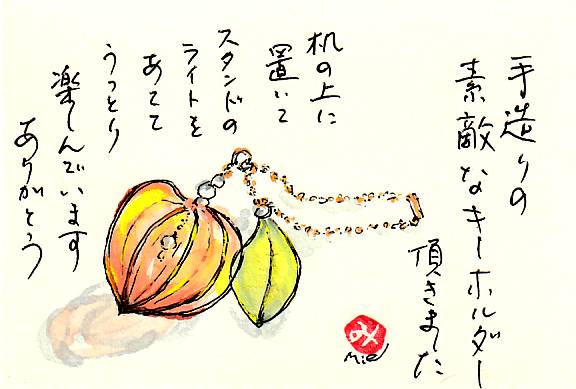 手造りの
素敵なキーホルダー
頂きました
机の上に
置いて
スタンドの
ライトを
あてて
うっとり
楽しんでいます
ありがとう
み
Mie